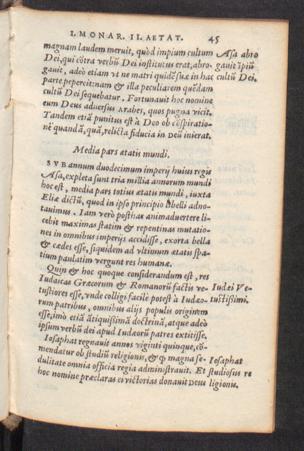 I. MONAR. II. AETAT. 45
magnam laudem meruit, quòd impium cultum
Dei, qui cõtra verbũ Dei institutus erat, abro-
gauit, adeò etiam vt ne matri quidẽ suæ in hac
parte pepercit: nam & illa peculiarem quẽdam
cultũ Dei sequebatur. Fortunauit hoc nomine
eum Deus aduersus Arabes, quos pugna vicit.
Tandem etiã punitus est à Deo ob cõspiratio-
nẽ quandã, quã, relicta fiducia in Deũ inierat.
Asa abro
gauit ĩpiũ
cultũ Dei.
Media pars ætatis mundi.
SVB annum duodecimum imperij huius regis
Asa, expleta sunt tria millia annorum mundi
hoc est, media pars totius ætatis mundi, iuxta
Eliæ dictũ, quod in ipso principio libelli adno-
tauimus. Iam verò posthac animaduertere li-
cebit maximas statim & repentinas mutatio-
nes in omnibus imperijs accidisse, exorta bella
& cædes esse, siquidem ad vltimum ætatis spa-
tium paulatim vergunt res humanæ.
Quin & hoc quoque considerandum est, res
Iudaicas Græcorum & Romanorũ factis ve-
tustiores esse, vnde colligi facilè potest à Iudæo-
rum patribus, omnibus alijs populis originem
esse, imò etiã ãtiquißimã doctrinã, atque adeò
ipsum verbũ dei apud Iudæorũ patres extitisse.
Iudei Ve-
tustißimi.
Iosaphat regnauit annos viginti quinque, cõ-
mendatur ob studiũ religionis, & q magna se-
dulitate omnia officia regia administrauit. Et
hoc nomine præclaras ei victorias donauit Deus
Iosaphat
studiosus re
ligionis.